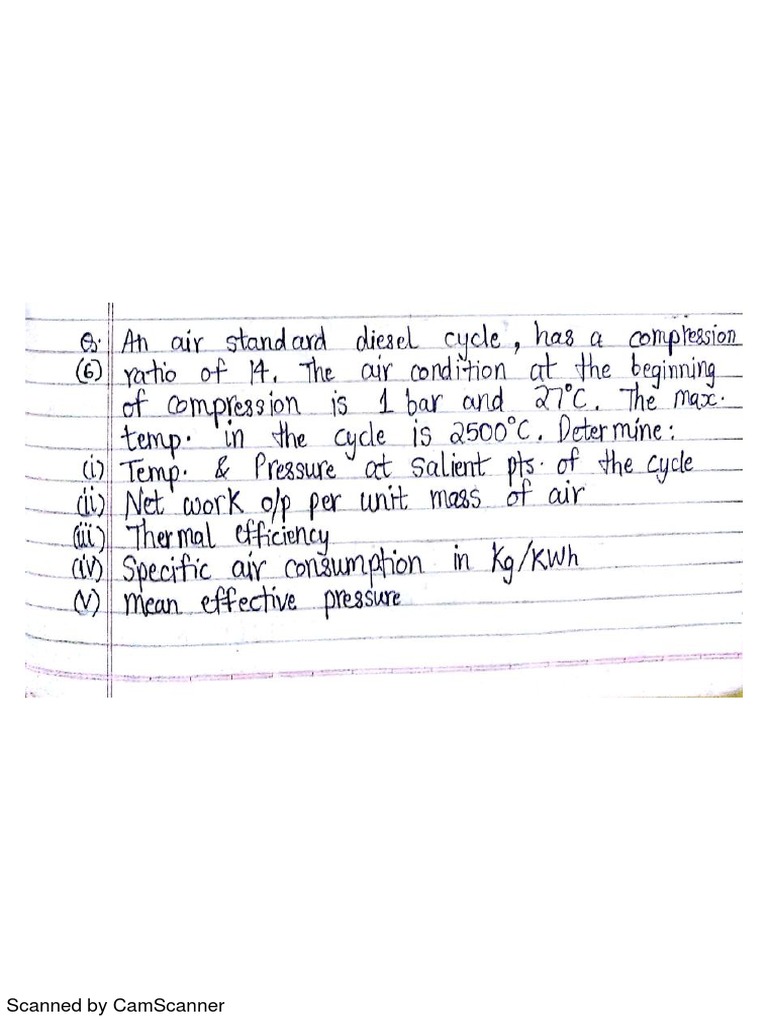 Q. An air standard diesel cycle, has a compression
(6) ratio of 14. The air condition at the beginning
of compression is 1 bar and 27°C. The max.
temp. in the cycle is 2500°C. Determine:
(i) Temp. & Pressure at salient pts. of the cycle
(ii) Net work o/p per unit mass of air
(iii) Thermal efficiency
(iv) Specific air consumption in Kg/KWh
(v) mean effective pressure
Scanned by CamScanner